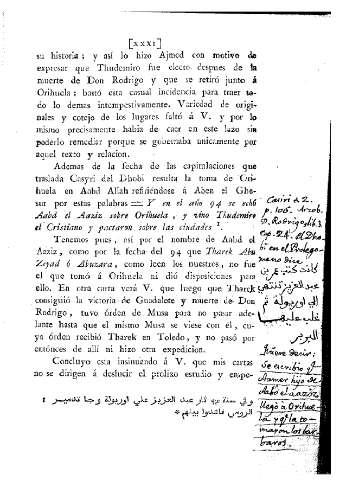 [XXXI]
su historia; y así lo hizo Ajmed con motivo de
expresar que Thudemiro fue electo despues de la
muerte de Don Rodrigo y que se retiró junto á
Orihuela: bastó esta casual incidencia para traer to-
do lo demas intempestivamente. Variedad de origi-
nales y cotejo de los lugares faltó á V. y por lo
mismo precisamente habia de caer en este lazo sin
poderlo remediar porque se gobernaba unicamente por
aquel texto y relacion.
Ademas de la fecha de las capitulaciones que
traslada Casyri del Dhobi resulta la toma de Ori-
huela en Aabd Allah refiriéndose á Aben el Ghe-
sur por estas palabras = Y en el año 94 se echó
Aabd el Aaziz sobre Orihuela, y vino Thudemiro
el Cristiano y pactaron sobre las ciudades
Tenemos pues, así por el nombre de Aabd el
Aaziz, como por la fecha del 94 que Tharek Abu
Zeyad ó Abuzara, como leen los nuestros, no fue
el que tomó á Orihuela ni dió disposiciones para
ello. En otra carta verá V. que luego que Tharek
consiguió la victoria de Guadalete y muerte de Don
Rodrigo, tuvo órden de Musa para no pasar ade-
lante hasta que el mismo Musa se viese con el, cu-
ya órden recibió Tharek en Toledo, y no pasó por
entónces de allí ni hizo otra expedicion.
Concluyo esta insinuando á V. que mis cartas
no se dirigen á deslucir el prolixo estudio y empe-
وفي سنة عبد العزيز علي اوريولة وجا تدمير
Casiri t 2.
p. 106. Arzob.
D. Rodrigo lib. 3
cap. 24.
Quiere decir:
se escribio q
hijo de
llegó á Orihue-
la y q la to-
maron los bar-
baros.